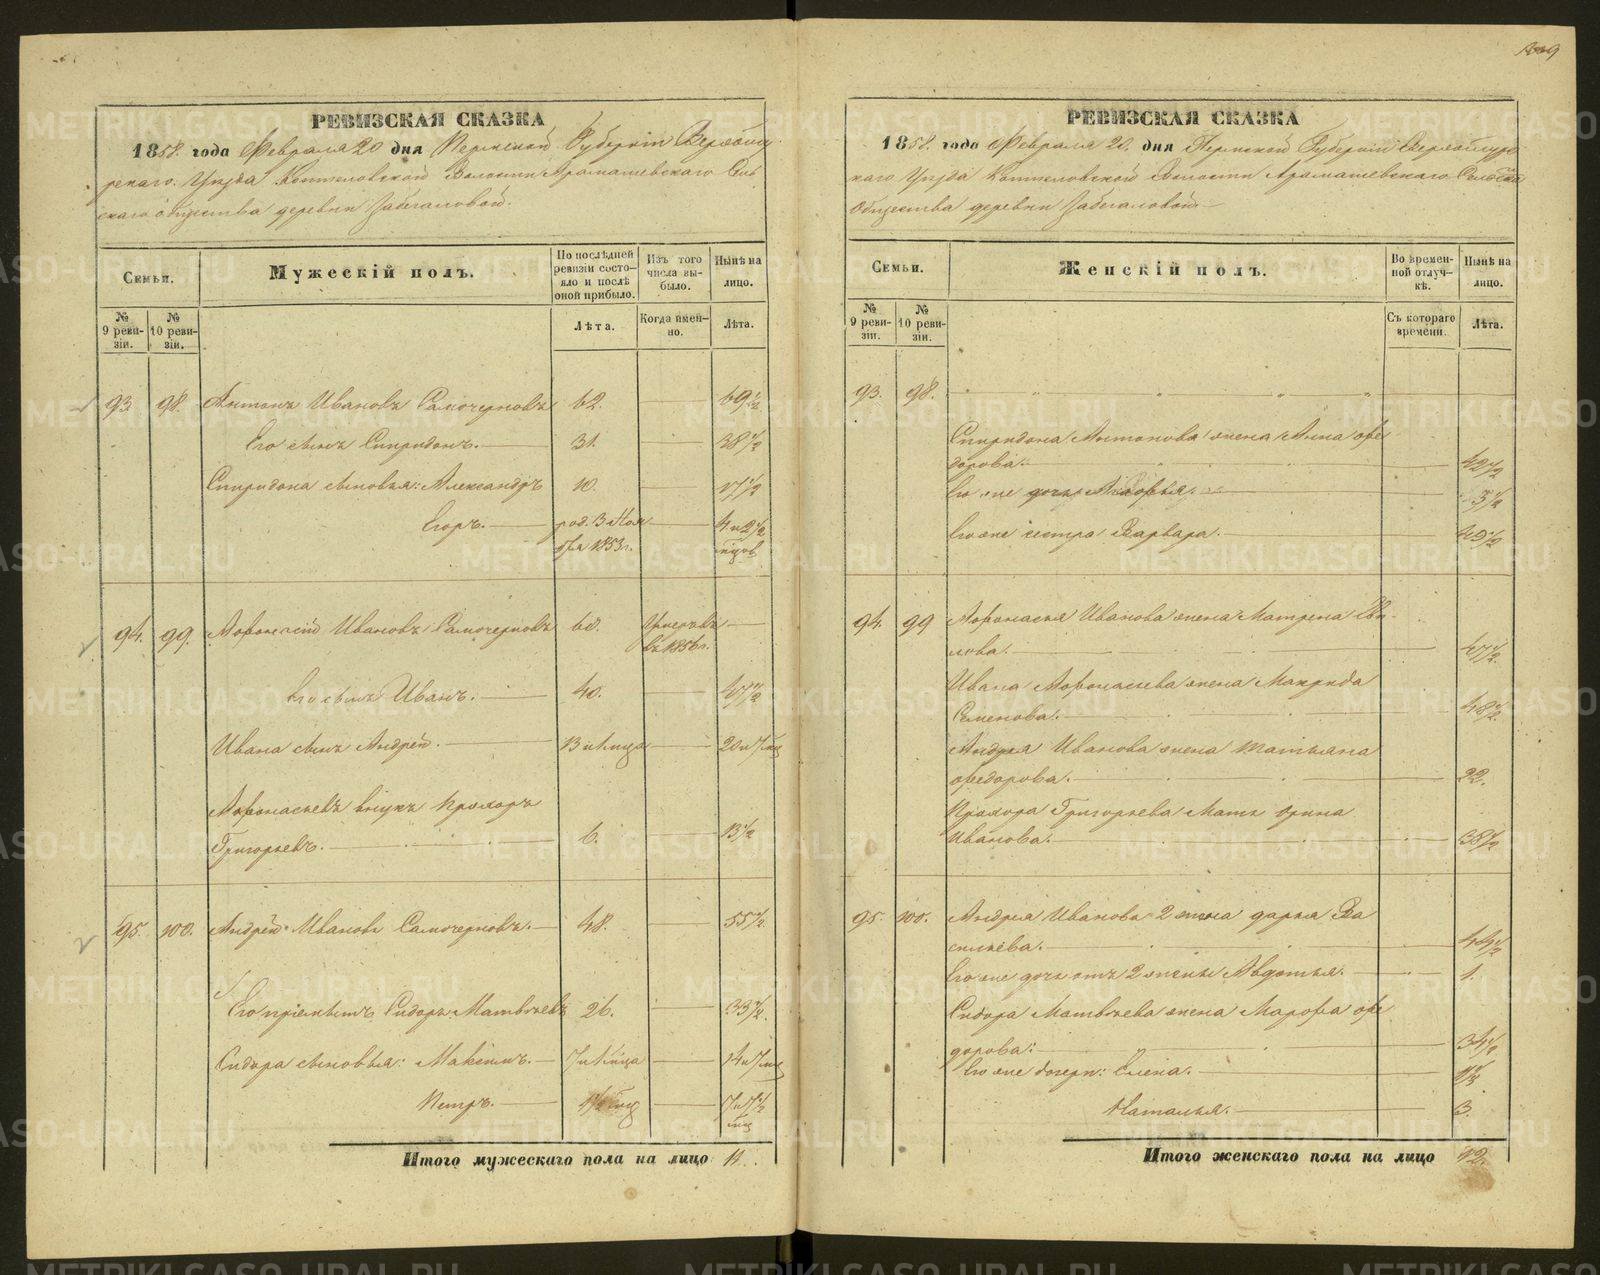 РЕВИЗСКАЯ СКАЗКА
1858 года Февраля 20 дня Пермской Губернiи Верхоту-
рскаго Уѣзда Коптеловской Волости Арамашевскаго Сель
скаго общества деревни Забегаловой.
Семьи.
Мужескiй полъ.
По послѣдней ревизiи состояло и послѣ оной прибыло.
Изъ того числа выбыло.
Нынѣ на лицо.
№ 9 ревизiи.
№ 10 ревизiи.
Лѣта.
Когда именно.
Лѣта.
93. 98. Антонъ Ивановъ Самочерновъ 62. 69½
Его сынъ Спиридонъ. 31. 38½
Спиридона сыновья: Александръ 10. 17½
Егоръ. род. 3 Ноя 4 и 2½
бря 1853 г. мѣсяцов
94. 99. Афонасiй Ивановъ Самочерновъ 68. Умеръ
въ 1856 г.
Его сынъ Иванъ. 40. 47½
Ивана сынъ Андрей. 13 и 1 мѣца 20 и 7 мѣц
Афонасьевъ внукъ Прохоръ
Григорьевъ. 6. 13½
95. 100. Андрей Ивановъ Самочерновъ. 48. 55½
Его прiемышъ Сидоръ Матвѣевъ 26. 33½
Сидора сыновья: Максимъ. 7 и 1 мѣца 14 и 7 мѣц
Петръ. 1½ мѣц 7 и 7½
мѣц
Итого мужескаго пола на лицо 11.
РЕВИЗСКАЯ СКАЗКА
1858. года Февраля 20. дня Пермской Губернiи Верхотурс
каго Уѣзда Коптеловской Волости Арамашевскаго Сельскаго
Общества деревни Забегаловой
Семьи.
Женскiй полъ.
Во временной отлучкѣ.
Нынѣ на лицо.
№ 9 ревизiи.
№ 10 ревизiи.
Съ котораго времени.
Лѣта.
93. 98. " " " "
Спиридона Антонова жена Анна Фе
дорова. 42½
Его же дочь 3½
Его же сестра Варвара. 49½
94. 99 Афонасья Иванова жена Матрена
47½
Ивана Афонасьева жена Макрида
Семенова. 48½
Андрея Иванова жена Татьяна
Федорова. 22.
Прохора Григорьева Мать Орина
Иванова. 38½
95. 100. Андрея Иванова 2 жена Дарья Ва
сильева. 44½
Его же дочь отъ 2 жены Авдотья. 1.
Сидора Матвѣева жена Марфа Фе
дорова: 34½
Его же дочери: Елена.
Наталья. 3.
Итого женскаго пола на лицо 12.